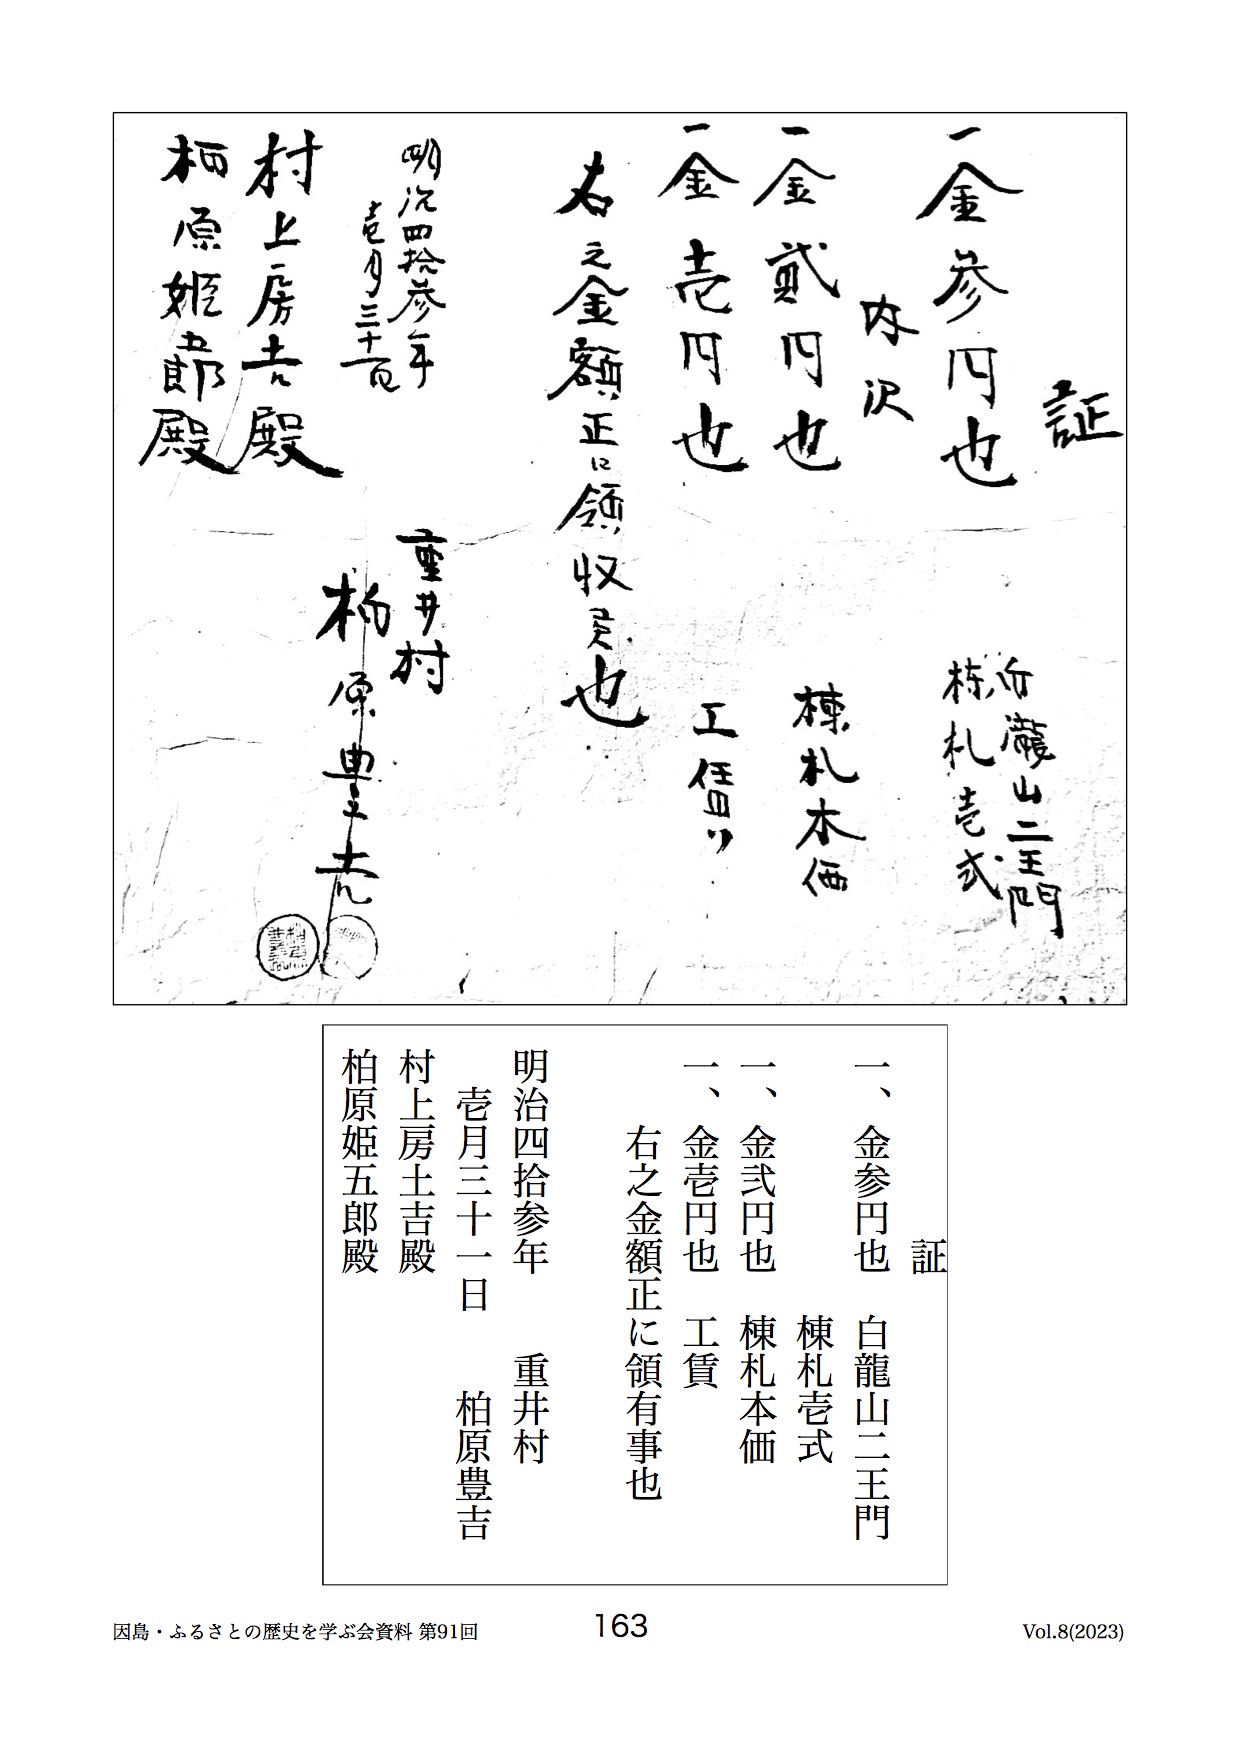 証
一金参円也
白瀧山二王門
棟札壱式
内沢
一金貳円也 棟札木価
一金壱円也 工賃
右之金額正に領収
也
明治四拾参年
壱月三十一日
重井村
柏原豊吉
村上房吉殿
柏原姫五郎殿
証
一、金参円也 白龍山二王門
棟札壱式
一、金弐円也 棟札本価
一、金壱円也 工賃
右之金額正に領有事也
明治四拾参年 重井村
壱月三十一日 柏原豊吉
村上房土吉殿
柏原姫五郎殿
因島・ふるさとの歴史を学ぶ会資料 第91回
163
Vol.8(2023)